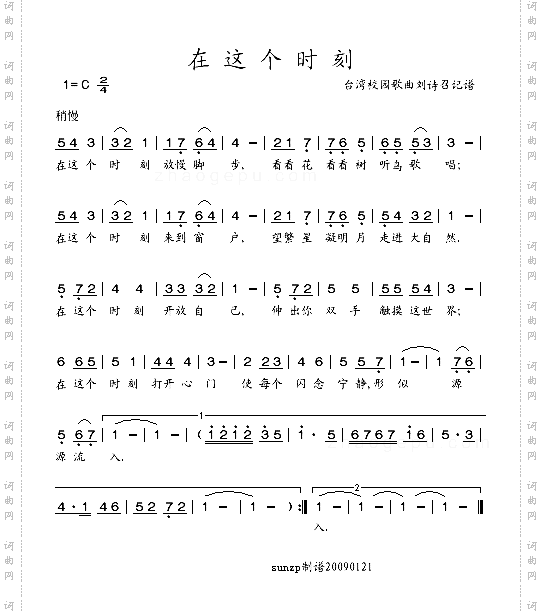 在这个时刻
1=C 2/4
台湾校园歌曲刘诗召记谱
稍慢
54 3 | 32 1 | 17 64 | 4 - | 21 7 | 76 5 | 65 53 | 1 - |
在这个 时刻 放慢脚步, 看看花 看看树 听鸟歌唱;
54 3 | 32 1 | 17 64 | 4 - | 21 7 | 76 5 | 5 54 32 | 1 - |
在这个 时刻 来到窗户, 望繁星 凝明月 走进大自然.
5 72 | 54 3 | 33 32 | 1 - | 5 72 | 5 5 | 54 32 | 1 - |
在这个 时刻 开放自己, 伸出你 双手 触摸这世界;
6 65 | 5 1 | 44 4 | 3 - | 2 23 | 4 6 | 5 57 | 1 - | 1 76 |
在这个 时刻 打开心门 使每个 闪念 宁静,形似 源
1
5 67 | 1 - | 1 - | (1212 35 | 1· 5 | 6767 16 | 5·3 |
源流入.
2
4·1 46 | 52 72 | 1 - | 1 - ) :‖ 1 - | 1 - ‖
入.
sunzp制谱20090121
词曲网
zhaogepu.com